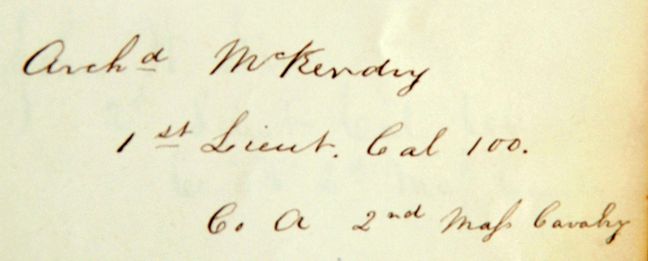 Archd McKendry
1st Lieut. Cal 100.
Co A 2nd Mass Cavalry